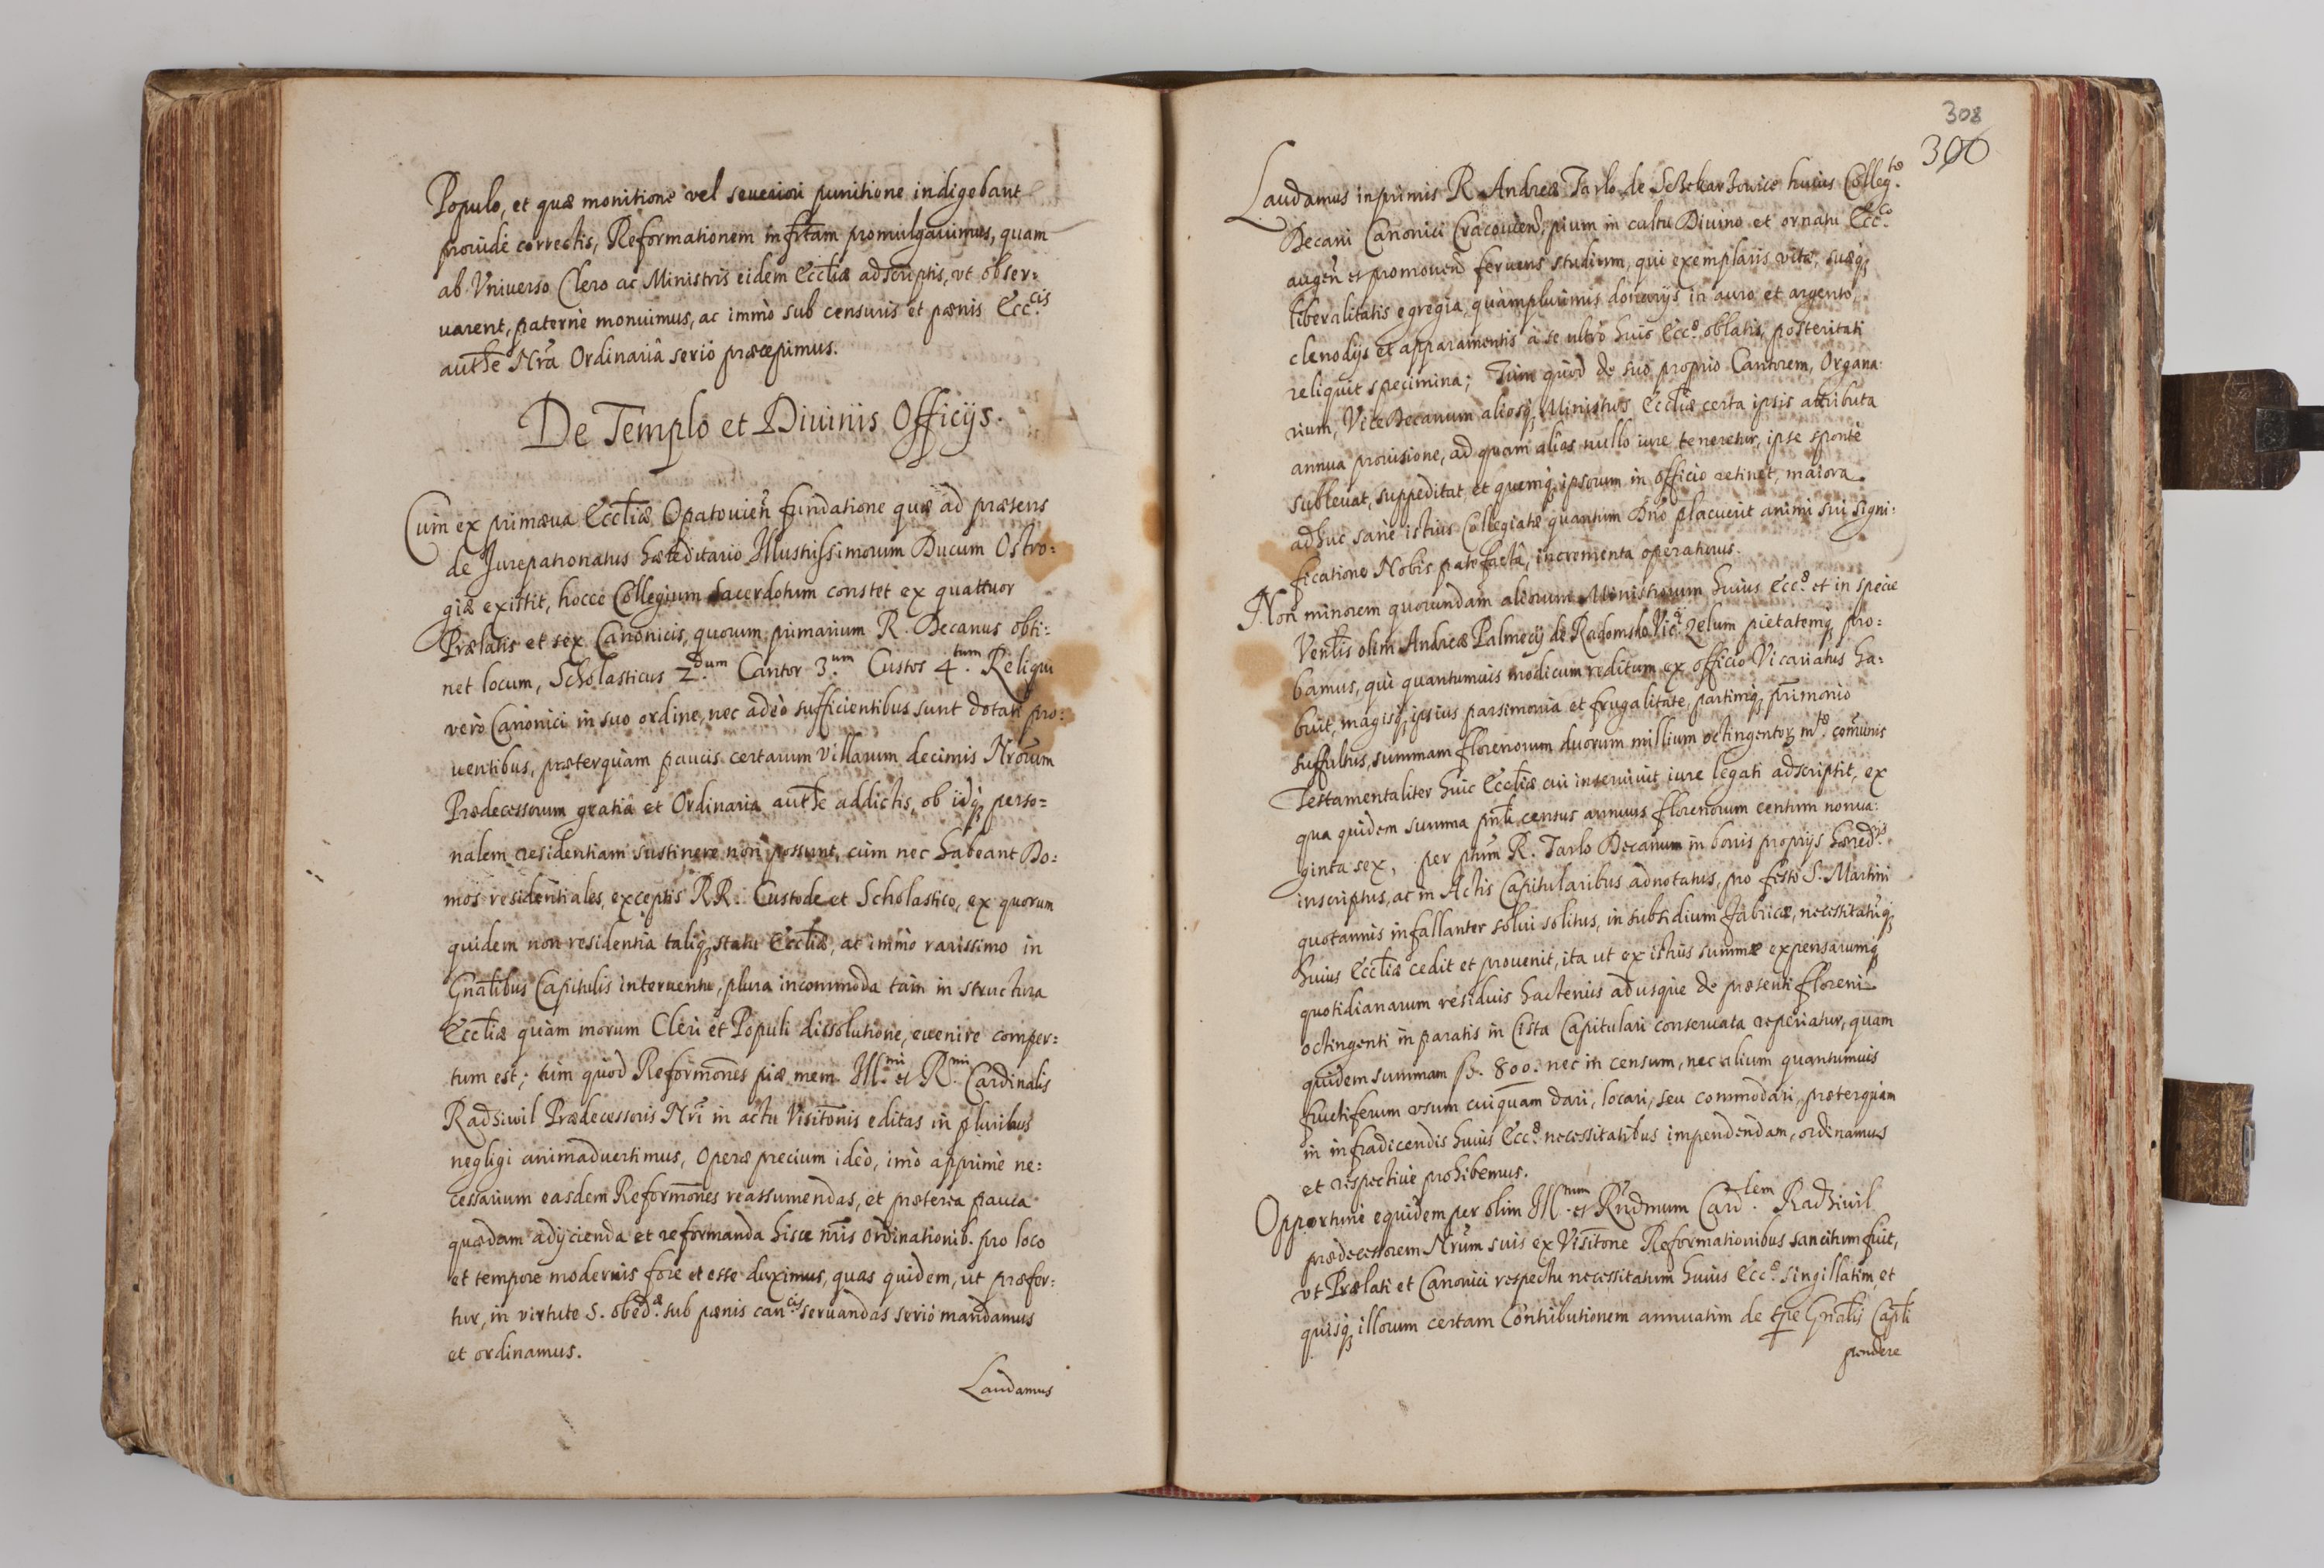 Populo, et quæ monitione vel seueriori punitione indigebant
prouide correctis, Reformationem infrtam promulgauimus, quam
ab Vniuerso Clero ac Ministris eidem Eccliæ adscriptis, vt obser:
uarent, paterne monuimus, ac immò sub censuris et pænis Ecc.cis
authte Nrã Ordinariâ seriò præcepimus.
De Templo et Diuinis Officijs.
Cum ex primæua Eccliæ Opatouien̄ fundatione quæ ad præsens
de Jurepatronatus hæreditario Illustrissimorum Ducum Ostro:
giæ existit, hocce Collegium sacerdotum constet ex quattuor
Prælatis et sex Canonicis, quorum primarium R. Decanus obti:
net locum, Scholasticus 2.dum Cantor 3.um Custos 4.tum Reliqui
verò Canonici in suo ordine, nec adeò sufficientibus sunt dotati pro:
uentibus, præterquàm paucis certarum Villarum decimis Nrõrum
Prædecessorum gratiâ et Ordinaria authte addictis, ob idq; perso=
nalem residentiam sustinere non possunt, cùm nec habeant Do:
mos residentiales, exceptis RR. Custode et Scholastico, ex quorum
quidem non residentia taliq; statu Eccliæ, at immò rarissimo in
Gnãlibus Capitulis interuentu, plura incommoda tàm in structura
Eccliæ quàm morum Cleri et Populi dissolutione, euenire comper:
tum est; tùm quod Reformões piæ mem. Ill.mi et R.mi Cardinalis
Radziwil Prædecessoris Nrĩ in actu Visitõnis editas in pluribus
negligi animaduertimus, Operæ precium ideò, imò apprime ne:
cessarium easdem Reformões reassumendas, et præterea pauca
quædam adijcienda et reformanda hisce nr̃is ordinationib. pro loco
et tempore modernis fore et esse duximus, quas quidem, ut præfer:
tur, in virtute S. obed.æ sub pænis can.cis seruandas seriò mandamus
et ordinamus.
Laudamus
308
306
Laudamus inprimis R. Andreæ Tarlo de Sczekarzowice huius Colleg.tæ
Decani Canonici Cracouien̄. pium in cultu Diuino et ornatu Ecc.co
augen̄ et promouend feruens studium, qui exemplaris vitæ, suæq;
liberalitatis egregia, quàmplurimis donarijs in auro et argento,
clenodijs et apparamentis à se ultrò huic Ecc.æ oblatis, posteritati
reliquit specimina; Tùm quòd de suo proprio Cantorem, Organa:
rium, ViceDecanum aliosq; Ministros Eccliæ certa ipsis attributa
annua prouisione, ad quam aliàs nullo iure teneretur, ipse spontè
subleuat, suppeditat, et quemq; ipsorum in officio retinet, maiora
adhuc sanè istius Collegiatæ quantum Dnõ placuerit animi sui signi:
ficatione Nobis patefactâ, incrementa operaturus.
Non minorem quorundam aliorum Ministrorum huius Ecc.æ et in specie
Venlis olim Andreæ Palmecij de Radomsko Vic.ij zelum pietatemq; pro:
bamus, qui quantumuis modicum reditum ex officio Vicariatus ha:
buit, magisq; ipsius parsimonia et frugalitate, partimq; p̃rimonio
suffultus, summam florenorum duorum millium octingentor; m.tæ com̃unis
Testamentaliter huic Eccliæ cui inseruiuit iure legati adscripsit, ex
qua quidem summa pñti census annuus florenorum centum nonua:
ginta sex, per p̃tum R. Tarlo Decanum in bonis proprijs hæred.rijs
inscriptus, ac in Actis Capitularibus adnotatus, pro festo S. Martini
quotannis infallanter solui solitus, in subsidium fabricæ, necessitatũq;
huius Eccliæ cedit et prouenit, ita ut ex istius summæ expensarumq;
quotidianarum residuis hactenùs adusque de præsenti floreni
octingenti in paratis in Cista Capitulari conseruata reperiatur, quam
quidem summam fl. 800. nec in censum, nec alium quantumuis
fructiferum vsum cuiquam dari, locari, seu commodari, præterquàm
in infradicendis huius Ecc.æ necessitatibus impendendam, ordinamus
et respectiuè prohibemus.
Opportunè equidem per olim Ill.mum et Rñdmum Card.lem Radziwil
prædecessorem Nrũm suis ex Visitõne Reformationibus sancitum fuit,
vt Prælati et Canonici respectu necessitatum huius Ecc.æ singillatim, et
quisq; illorum certam Contributionem annuatim de tp̃re Gnãlis Capli
pendere